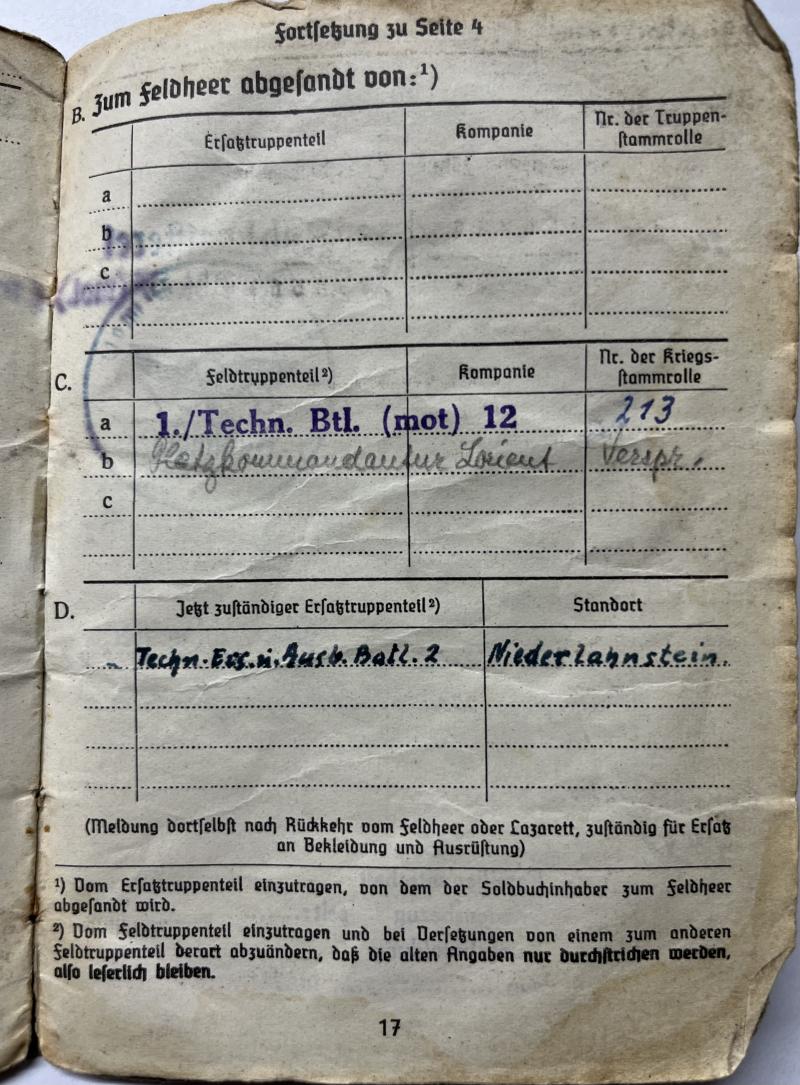 Fortſetzung zu Seite 4
B. Zum Feldheer abgeſandt von:¹)
Erſatztruppenteil Kompanie Nr. der Truppen-
ſtammrolle
a
b
c
C. Feldtruppenteil²) Kompanie Nr. der Kriegs-
ſtammrolle
a 1./Techn. Btl. (mot) 12 213
b Platzkommandantur Lorient Verspr.
c
D. Jetzt zuſtändiger Erſatztruppenteil²) Standort
Techn. Ers. u. Ausb. Batl. 2 Niederlahnstein.
(Meldung dortſelbſt nach Rückkehr vom Feldheer oder Lazarett, zuſtändig für Erſatz
an Bekleidung und Ausrüſtung)
¹) Vom Erſatztruppenteil einzutragen, von dem der Soldbuchinhaber zum Feldheer
abgeſandt wird.
²) Vom Feldtruppenteil einzutragen und bei Verſetzungen von einem zum anderen
Feldtruppenteil derart abzuändern, daß die alten Angaben nur durchſtrichen werden,
alſo leſerlich bleiben.
17